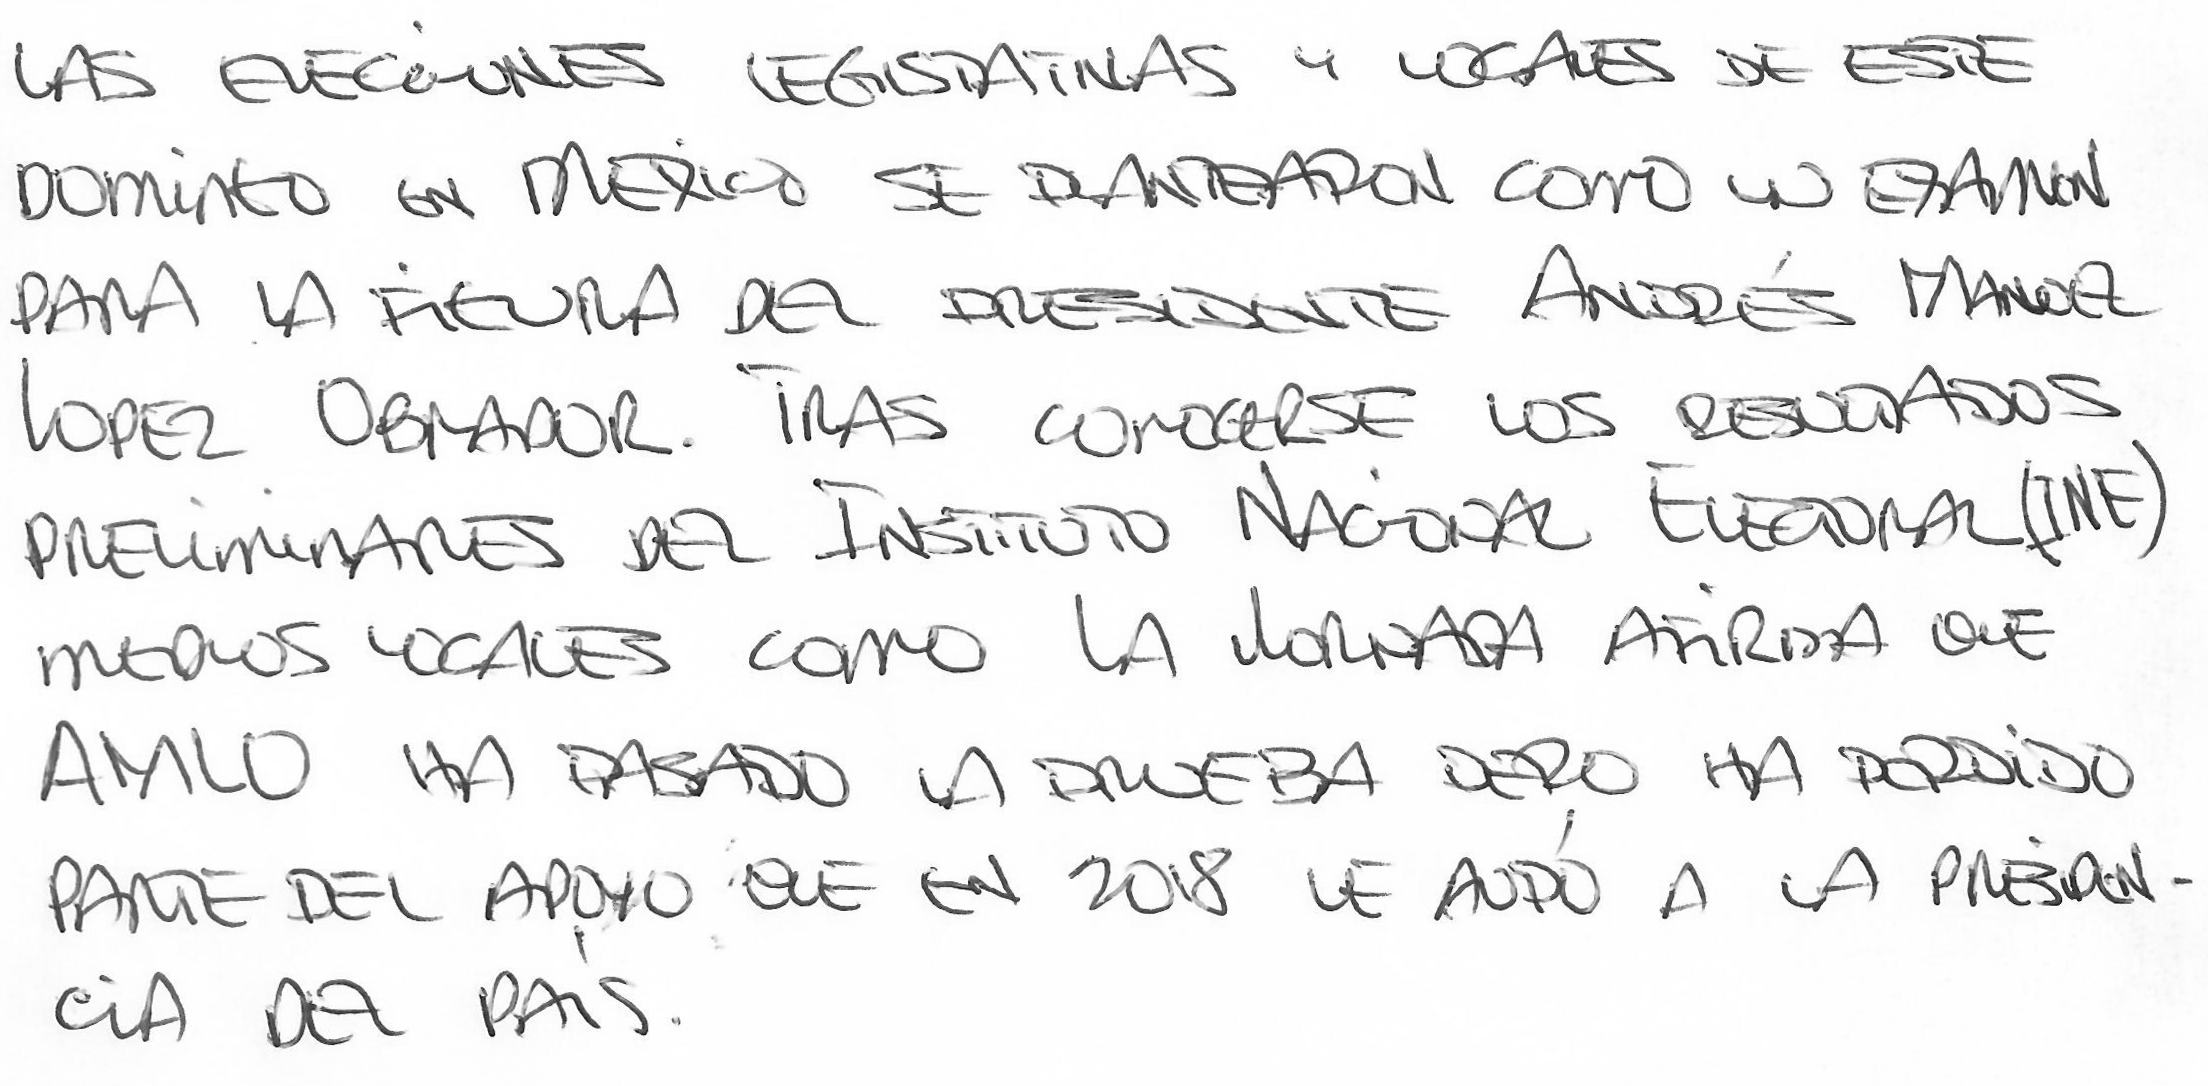 LAS ELECCIONES LEGISLATIVAS Y LOCALES DE ESTE
DOMINGO EN MEXICO SE PLANTEARON COMO UN EXAMEN
PARA LA FIGURA DEL PRESIDENTE ANDRÉS MANUEL
LOPEZ OBRADOR. TRAS CONOCERSE LOS RESULTADOS
PRELIMINARES DEL INSTITUTO NACIONAL ELECTORAL (INE)
MEDIOS LOCALES COMO LA JORNADA AFIRMA QUE
AMLO HA PASADO LA PRUEBA PERO HA PERDIDO
PARTE DEL APOYO QUE EN 2018 LE AUPÓ A LA PRESIDEN-
CIA DEL PAÍS.